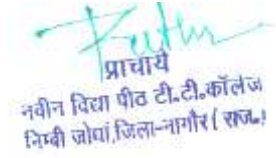 प्राचार्य
नवीन विद्या पीठ टी.टी.कॉलेज
निम्बी जोधां,जिला-नागौर ( राज.)